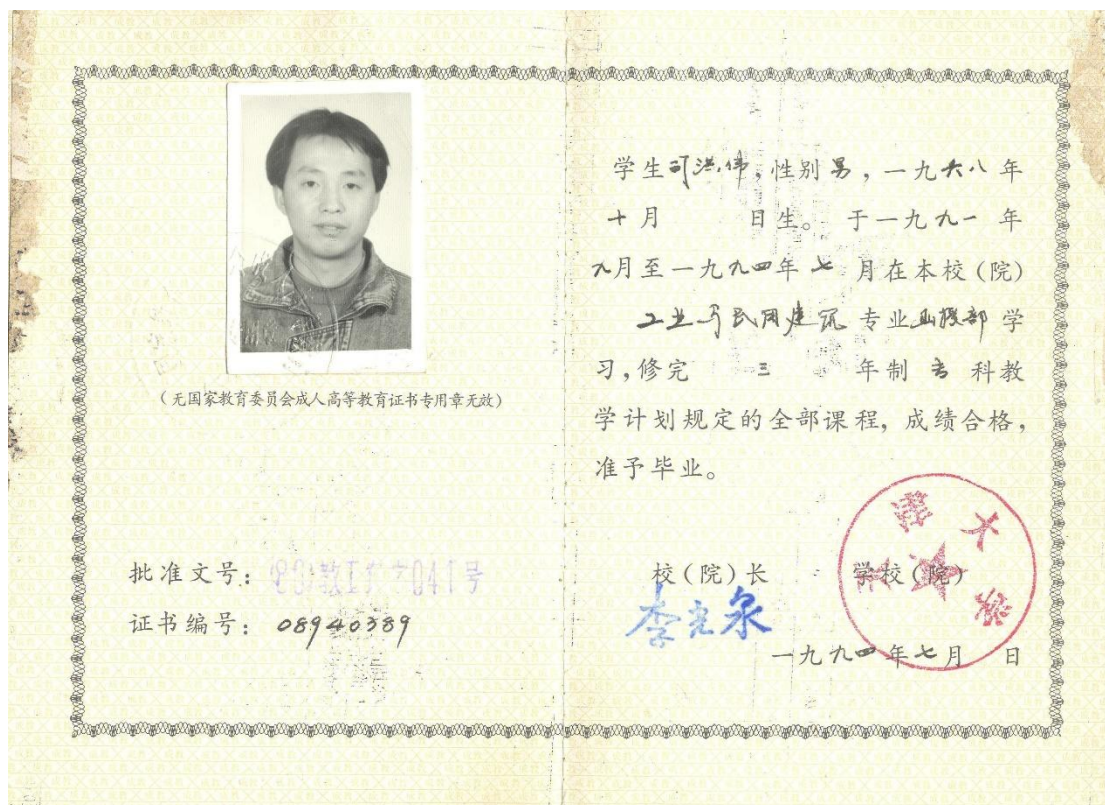 (无国家教育委员会成人高等教育证书专用章无效)
批准文号: 教 字041号
证书编号: 08940389
学生司洪伟, 性别男, 一九六八年
十月 日生。于一九九一年
九月至一九九四年七月在本校(院)
工业与民用建筑专业函授部学
习, 修完三年制专科教
学计划规定的全部课程, 成绩合格,
准予毕业。
校(院)长 学校(院)
李光泉
一九九四年七月 日